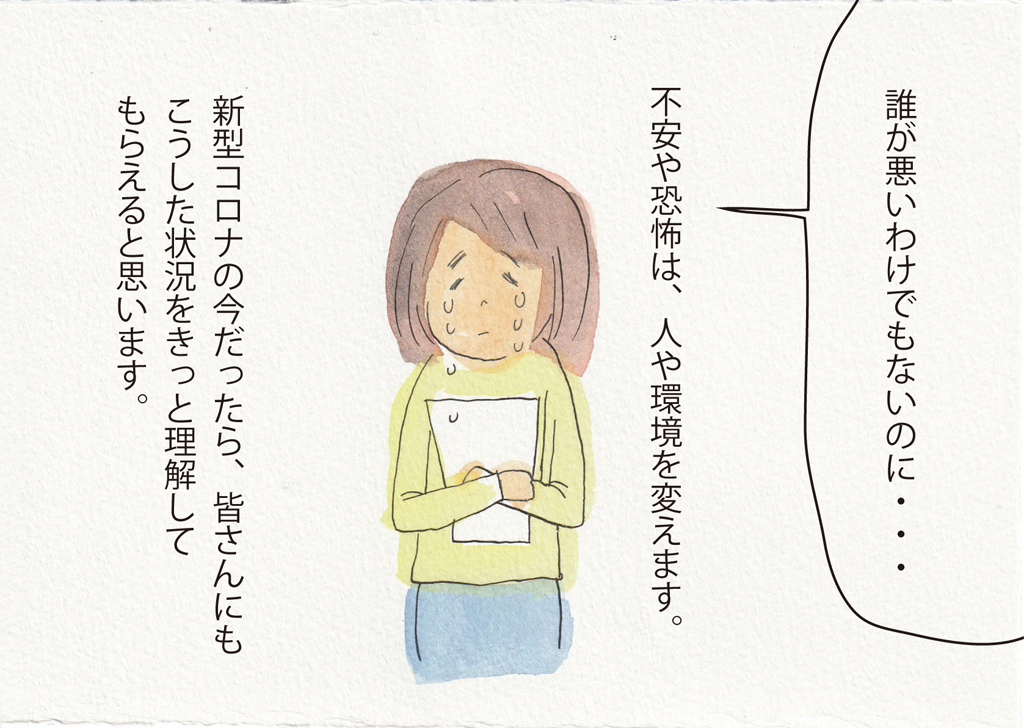 誰が悪いわけでもないのに・・・
不安や恐怖は、人や環境を変えます。
新型コロナの今だったら、皆さんにも
こうした状況をきっと理解して
もらえると思います。